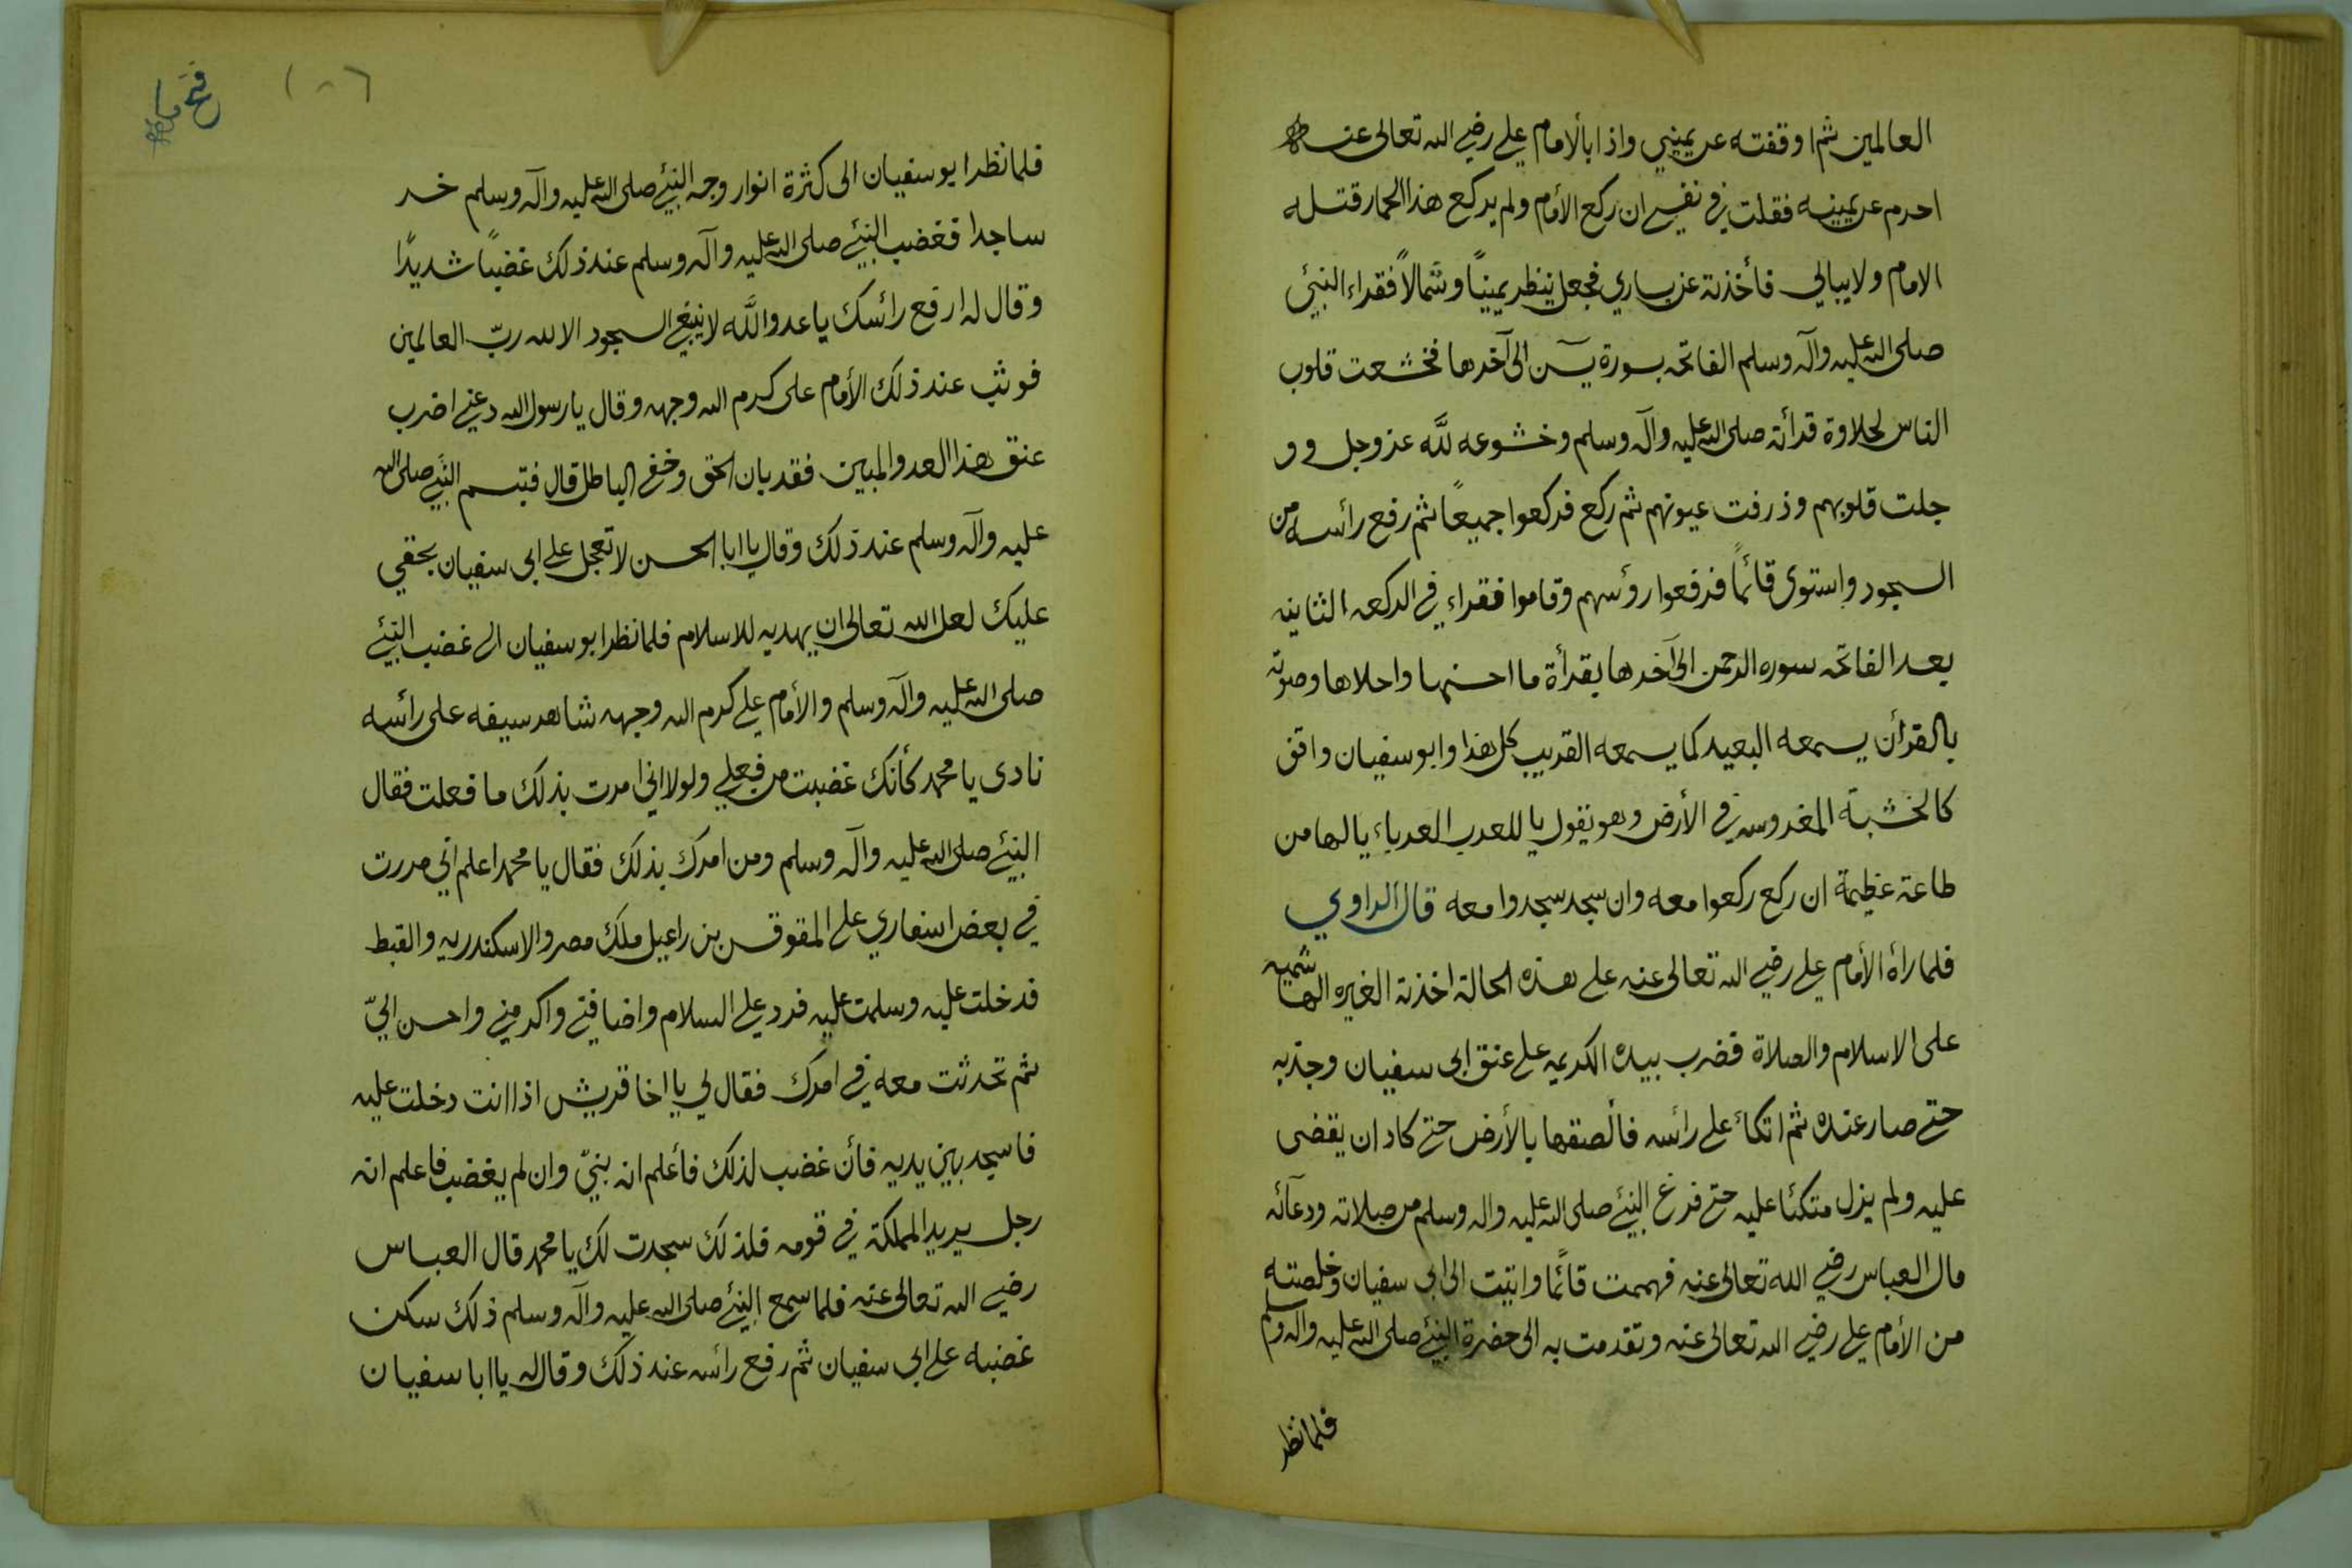 العالمين ثم اوقفته عن يميني واذا بالأمام علي رضي الله تعالى عنه
احرم عن يمينه فقلت في نفسي ان ركع الأمام ولم يركع هذا الحمار قتله
الامام ولا يبالي فأخذته عن يساري فجعل ينظر يمينًا وشمالاً فقراء النبئ
صلى الله عليه وآله وسلم الفاتحه بسورة يسن الى آخرها فخشعت قلوب
الناس لحلاوة قرأته صلى الله عليه وآله وسلم وخشوعه لله عز وجل وو
جلت قلوبهم وذرفت عيونهم ثم ركع فركعوا جميعًا ثم رفع رائسه من
السجود واستوى قائمًا فرفعوا رؤسهم وقاموا فقراء في الركعه الثانيه
بعد الفاتحه سوره الرحمن الى آخرها بقرأة ما احسنها واحلاها وصوته
بالقرأن يسمعه البعيد كما يسمعه القريب كل هذا وابو سفيان واقف
كالخشبة المغروسه في الأرض وهو يقول يا للعرب العرباء يا لها من
طاعة عظيمة ان ركع ركعوا معه وان سجد سجدوا معه قال الراوي
فلما رأه الأمام علي رضي الله تعالى عنه على هذه الحالة اخذته الغيره الهاشميه
على الاسلام والصلاة فضرب بيده الكريمه على عنق ابى سفيان وجذبه
حتى صار عنده ثم اتكاء على رائسه فألصقها بالأرض حتى كاد ان يقضى
عليه ولم يزل متكئا عليه حتى فرغ النبئ صلى الله عليه واله وسلم من صلاته ودعآئه
قال العباس رضي الله تعالى عنه فهممت قائمًا واتيت الى ابى سفيان وخلصته
من الأمام علي رضي الله تعالى عنه وتقدمت به الى حضرة النبئ صلى الله عليه وآله وسلم
فلما نظر
فلما نظر ابو سفيان الى كثرة انوار وجه النبئ صلى الله عليه وآله وسلم خر
ساجدا فغضب النبئ صلى الله عليه وآله وسلم عند ذلك غضبًا شديدًا
وقال له ارفع رائسك يا عدو الله لا ينبغي السجود الا لله ربّ العالمين
فوثب عند ذلك الأمام على كرم الله وجهه وقال يا رسول الله دعني اضرب
عنق هذا العدو المبين فقد بان الحق وخفي الباطل قال فتبسم النبئ صلى الله
عليه وآله وسلم عند ذلك وقال يا ابا الحسن لا تعجل على ابى سفيان بحقي
عليك لعل الله تعالى ان يهديه للاسلام فلما نظر ابو سفيان الى غضب النبئ
صلى الله عليه وآله وسلم والأمام علي كرم الله وجهه شاهر سيفه على رائسه
نادى يا محمد كأنك غضبت من فعلي ولولا اني امرت بذلك ما فعلت فقال
النبئ صلى الله عليه وآله وسلم ومن امرك بذلك فقال يا محمد اعلم اني مررت
في بعض اسفاري على المقوقس بن راعيل ملك مصر والاسكندريه والقبط
فدخلت عليه وسلمت عليه فرد علي السلام واضافني واكرمني واحسن اليّ
ثم تحدثت معه في امرك فقال لي يا اخا قريش اذا انت دخلت عليه
فاسجد بين يديه فأن غضب لذلك فأعلم انه نبيّ وان لم يغضب فاعلم انه
رجل يريد المملكة في قومه فلذلك سجدت لك يا محمد قال العباس
رضي الله تعالى عنه فلما سمع النبئ صلى الله عليه وآله وسلم ذلك سكن
غضبه على ابي سفيان ثم رفع رائسه عند ذلك وقال له يا ابا سفيان